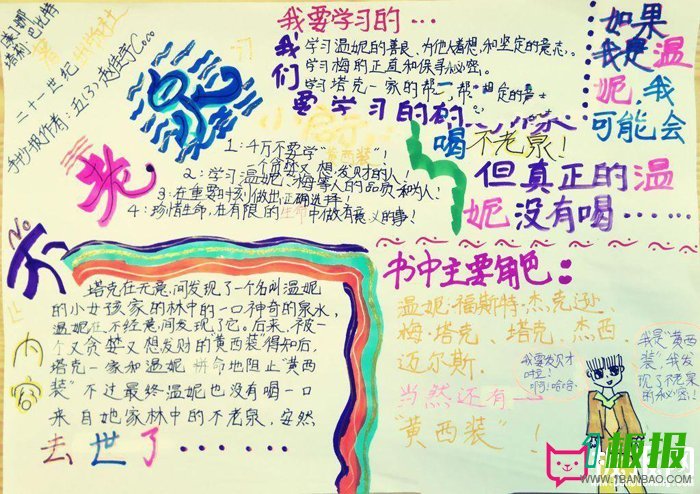 [美]娜塔莉·巴比特
著
二十一世纪出版社
手抄报作者:五(3)
不老泉
No
内容
我要学习的…
我们要学习的
学习温妮的善良、为他人着想和坚定的意志。
学习梅的正直和保守秘密。
学习塔克一家的帮
1:千万不要学"黄西装"!
一个贪婪又想发财的人!
2:学习温妮、梅等人的品质和为人!
3:在重要时刻做出正确选择!
4:珍惜生命,在有限的生命中做有意义的事!
如果
我是温
妮,我
可能会
喝
不老泉!
但真正的温
妮没有喝……
塔克在无意间发现了一个名叫温妮
的小女孩家的林中的一口神奇的泉水,
温妮在不经意间发现了它。后来,被一
个又贪婪又想发财的"黄西装"得知后,
塔克一家和温妮拼命地阻止"黄西
装"不过最终温妮也没有喝一口
来自她家林中的不老泉,安然
去世了……
书中主要角色:
温妮·福斯特·杰克逊、
梅·塔克、塔克、杰西、
迈尔斯.
当然还有—
"黄西装"!
我要发财
啦!
啊!哈哈
我是"黄西
装"我发
现了不老泉
的秘密!
板报
WWW.1BANBAO.COM